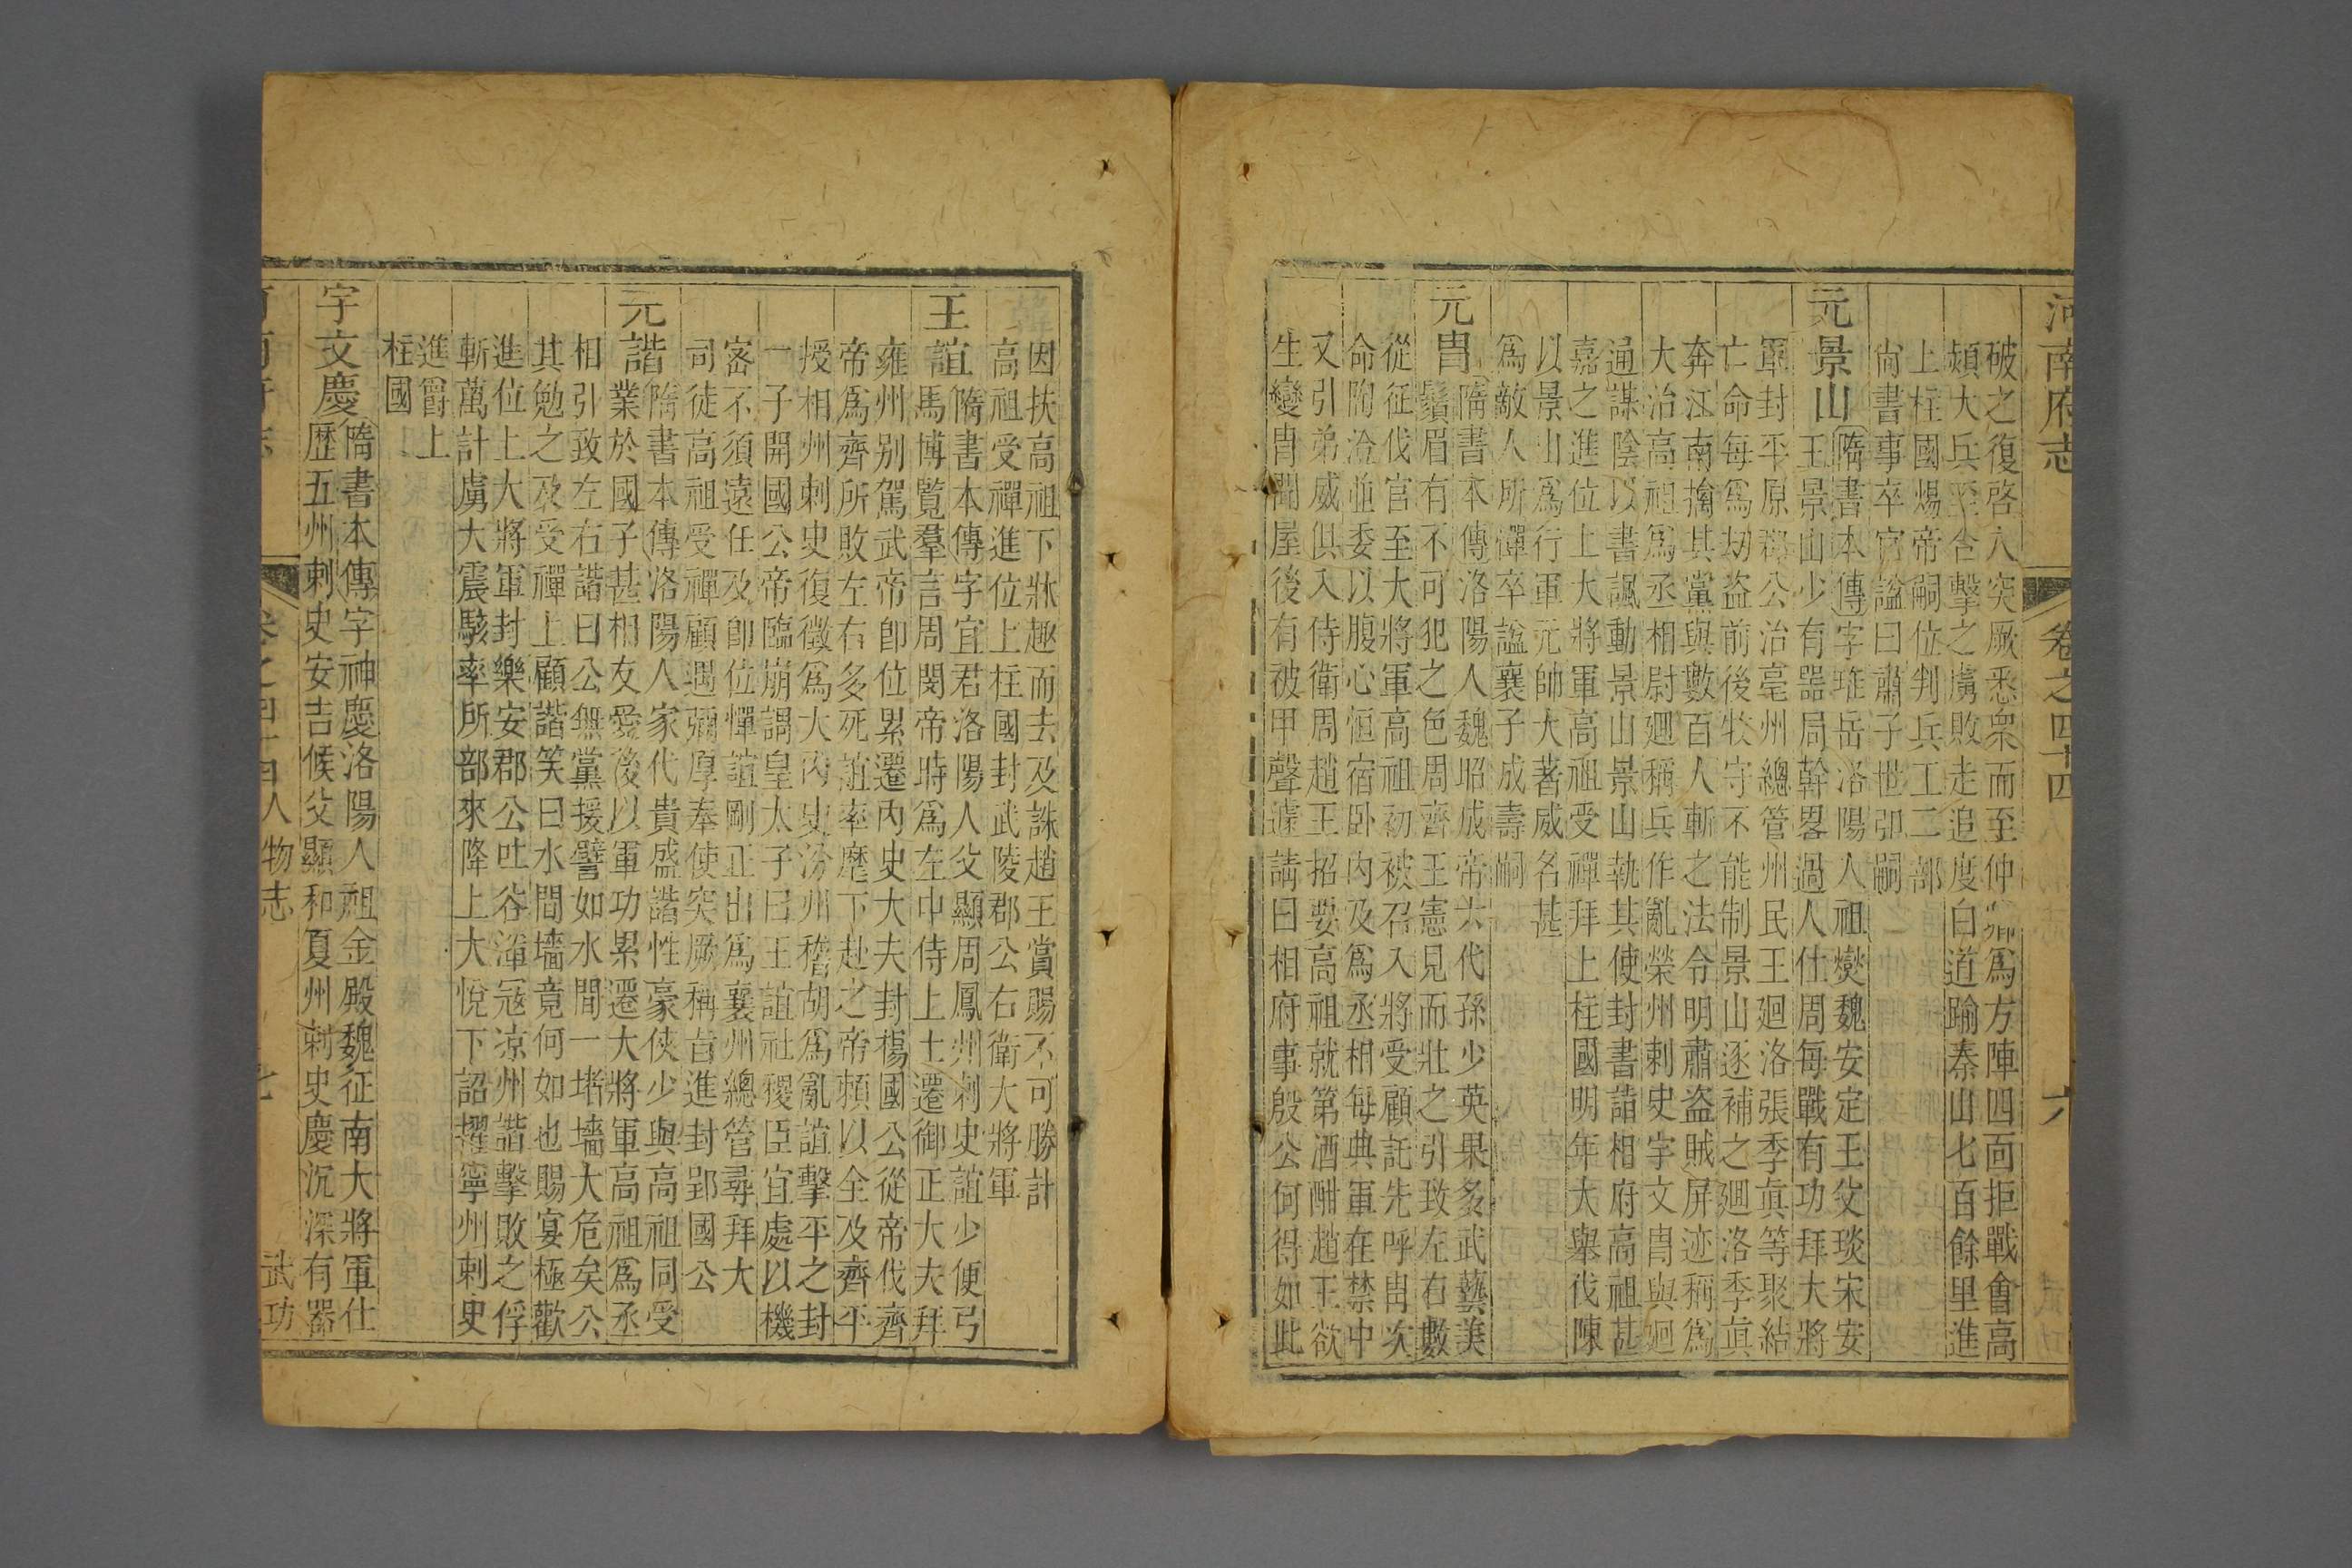 河南府志
卷之四十四
六
破之復啓人突厥悉眾而至仲卿爲方陣四面拒戰會高
熲大兵至合擊之虜敗走追度白道踰秦山七百餘里進
上柱國煬帝嗣位判兵工二部
尙書事卒官謚曰肅子世弘嗣
元景山隋書本傳字珤岳洛陽人祖爕魏安定王父琰宋安
王景山少有器局幹畧過人仕周每戰有功拜大將
軍封平原郡公治亳州總管州民王迴洛張季眞等聚結
亡命每爲刼盜前後牧守不能制景山逐補之迴洛季眞
奔江南擒其黨與數百人斬之法令明肅盜賊屏迹稱爲
大治高祖爲丞相尉迴稱兵作亂滎州刺史宇文冑與迴
通謀陰以書諷動景山景山執其使封書詣相府高祖甚
嘉之進位上大將軍高祖受禪拜上柱國明年大舉伐陳
以景山爲行軍元帥大著威名甚
爲敵人所憚卒謚襄子成壽嗣
元冑隋書本傳洛陽人魏昭成帝六代孫少英果多武藝美
鬚眉有不可犯之色周齊王憲見而壯之引致左右數
從征伐官至大將軍高祖初被召入將受顧託先呼冑次
命陶澄並委以腹心恒宿卧內及爲丞相每典軍在禁中
又引弟威俱入侍衛周趙王招要高祖就第酒酣趙王欲
生變冑聞屋後有被甲聲遽請曰相府事殷公何得如此
因扶高祖下牀趣而去及誅趙王賞賜不可勝計
高祖受禪進位上柱國封武陵郡公右衛大將軍
王誼隋書本傳字宜君洛陽人父顯周鳳州刺史誼少便弓
馬博覽羣言周閔帝時爲左中侍上士遷御正大夫拜
雍州别駕武帝卽位累遷內史大夫封楊國公從帝伐齊
帝爲齊所敗左右多死誼率麾下赴之帝賴以全及齊平
授相州刺史復徵爲大內史汾州稽胡爲亂誼擊平之封
一子開國公帝臨崩謂皇太子曰王誼社稷臣宜處以機
密不須遠任及卽位憚誼剛正出爲襄州總管尋拜大
司徒高祖受禪顧遇彌厚奉使突厥稱旨進封郢國公
元諧隋書本傳洛陽人家代貴盛諧性豪俠少與高祖同受
業於國子甚相友愛後以軍功累遷大將軍高祖爲丞
相引致左右諧曰公無黨援譬如水間一堵墻大危矣公
其勉之及受禪上顧諧笑曰水間墻竟何如也賜宴極歡
進位上大將軍封樂安郡公吐谷渾寇凉州諧擊敗之俘
斬萬計虜大震駭率所部來降上大悅下詔擢寧州刺史
進爵上
柱國
宇文慶隋書本傳字神慶洛陽人祖金殿魏征南大將軍仕
歷五州刺史安吉候父顯和夏州刺史慶沉深有器
人物志
武功